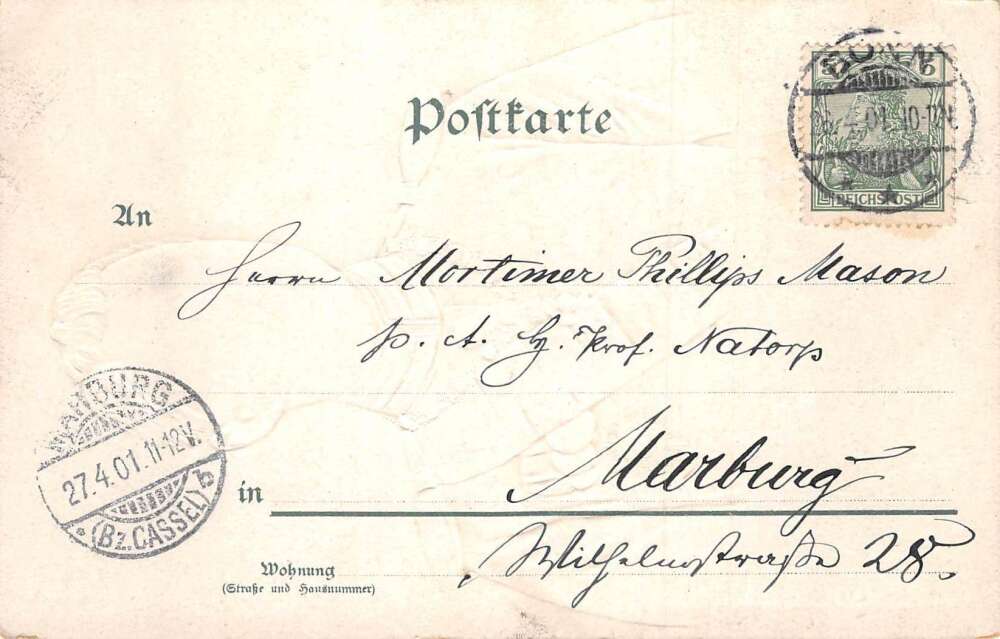 Postkarte
BONN
4.01. 10-11V.
5 5
REICHSPOST
An
Herrn Mortimer Phillips Mason
p. A. H. Prof. Natorp
MARBURG
27.4.01.11-12V.
* (Bz. CASSEL) b
in Marburg
Wohnung
(Straße und Hausnummer)
Wilhelmstraße 28.